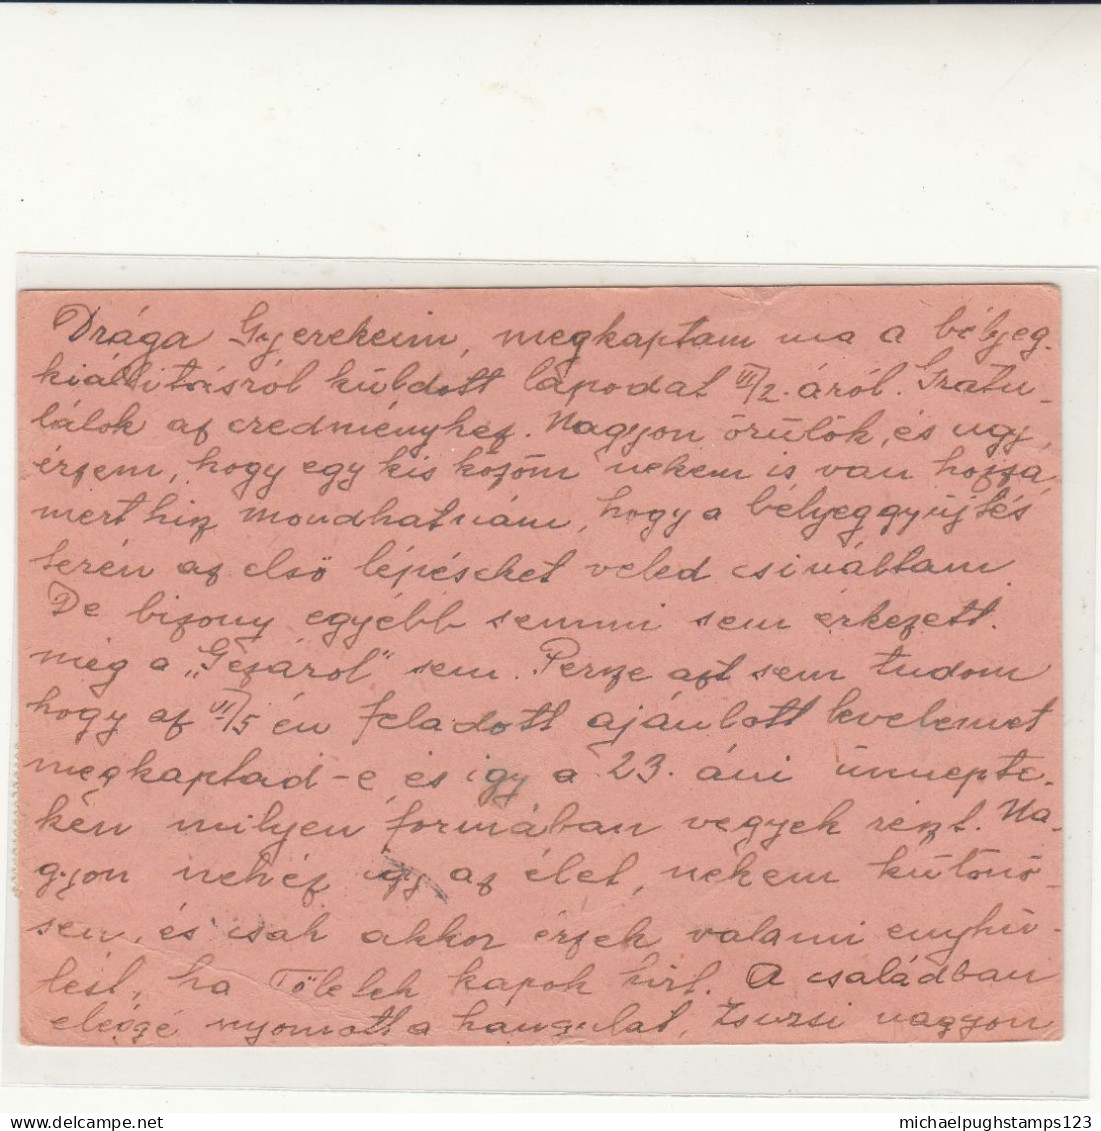 Drága Gyerekeim, megkaptam ma a bélyeg-
kiállitásról küldött lapodat VII/2.-áról. Gratu-
lálok az eredményhez. Nagyon örülök, és ugy
érzem, hogy egy kis közöm nekem is van hozzá,
mert hisz mondhatnám, hogy a bélyeggyüjtés
terén az első lépéseket veled csináltam.
De bizony egyébb semmi sem érkezett.
még a „Gézáról" sem. Persze azt sem tudom
hogy az VI/5 én feladott ajánlott levelemet
megkaptad-e és igy a 23. áni ünnepte-
ken milyen formában vegyek részt. Na-
gyon nehéz igy az élet, nekem külonö-
sen, és csak akkor érzek valami enyhü-
lést, ha Tőletek kapok hirt. A családban
eléggé nyomott a hangulat, Zsuzsi nagyon
michaelpughstamps123